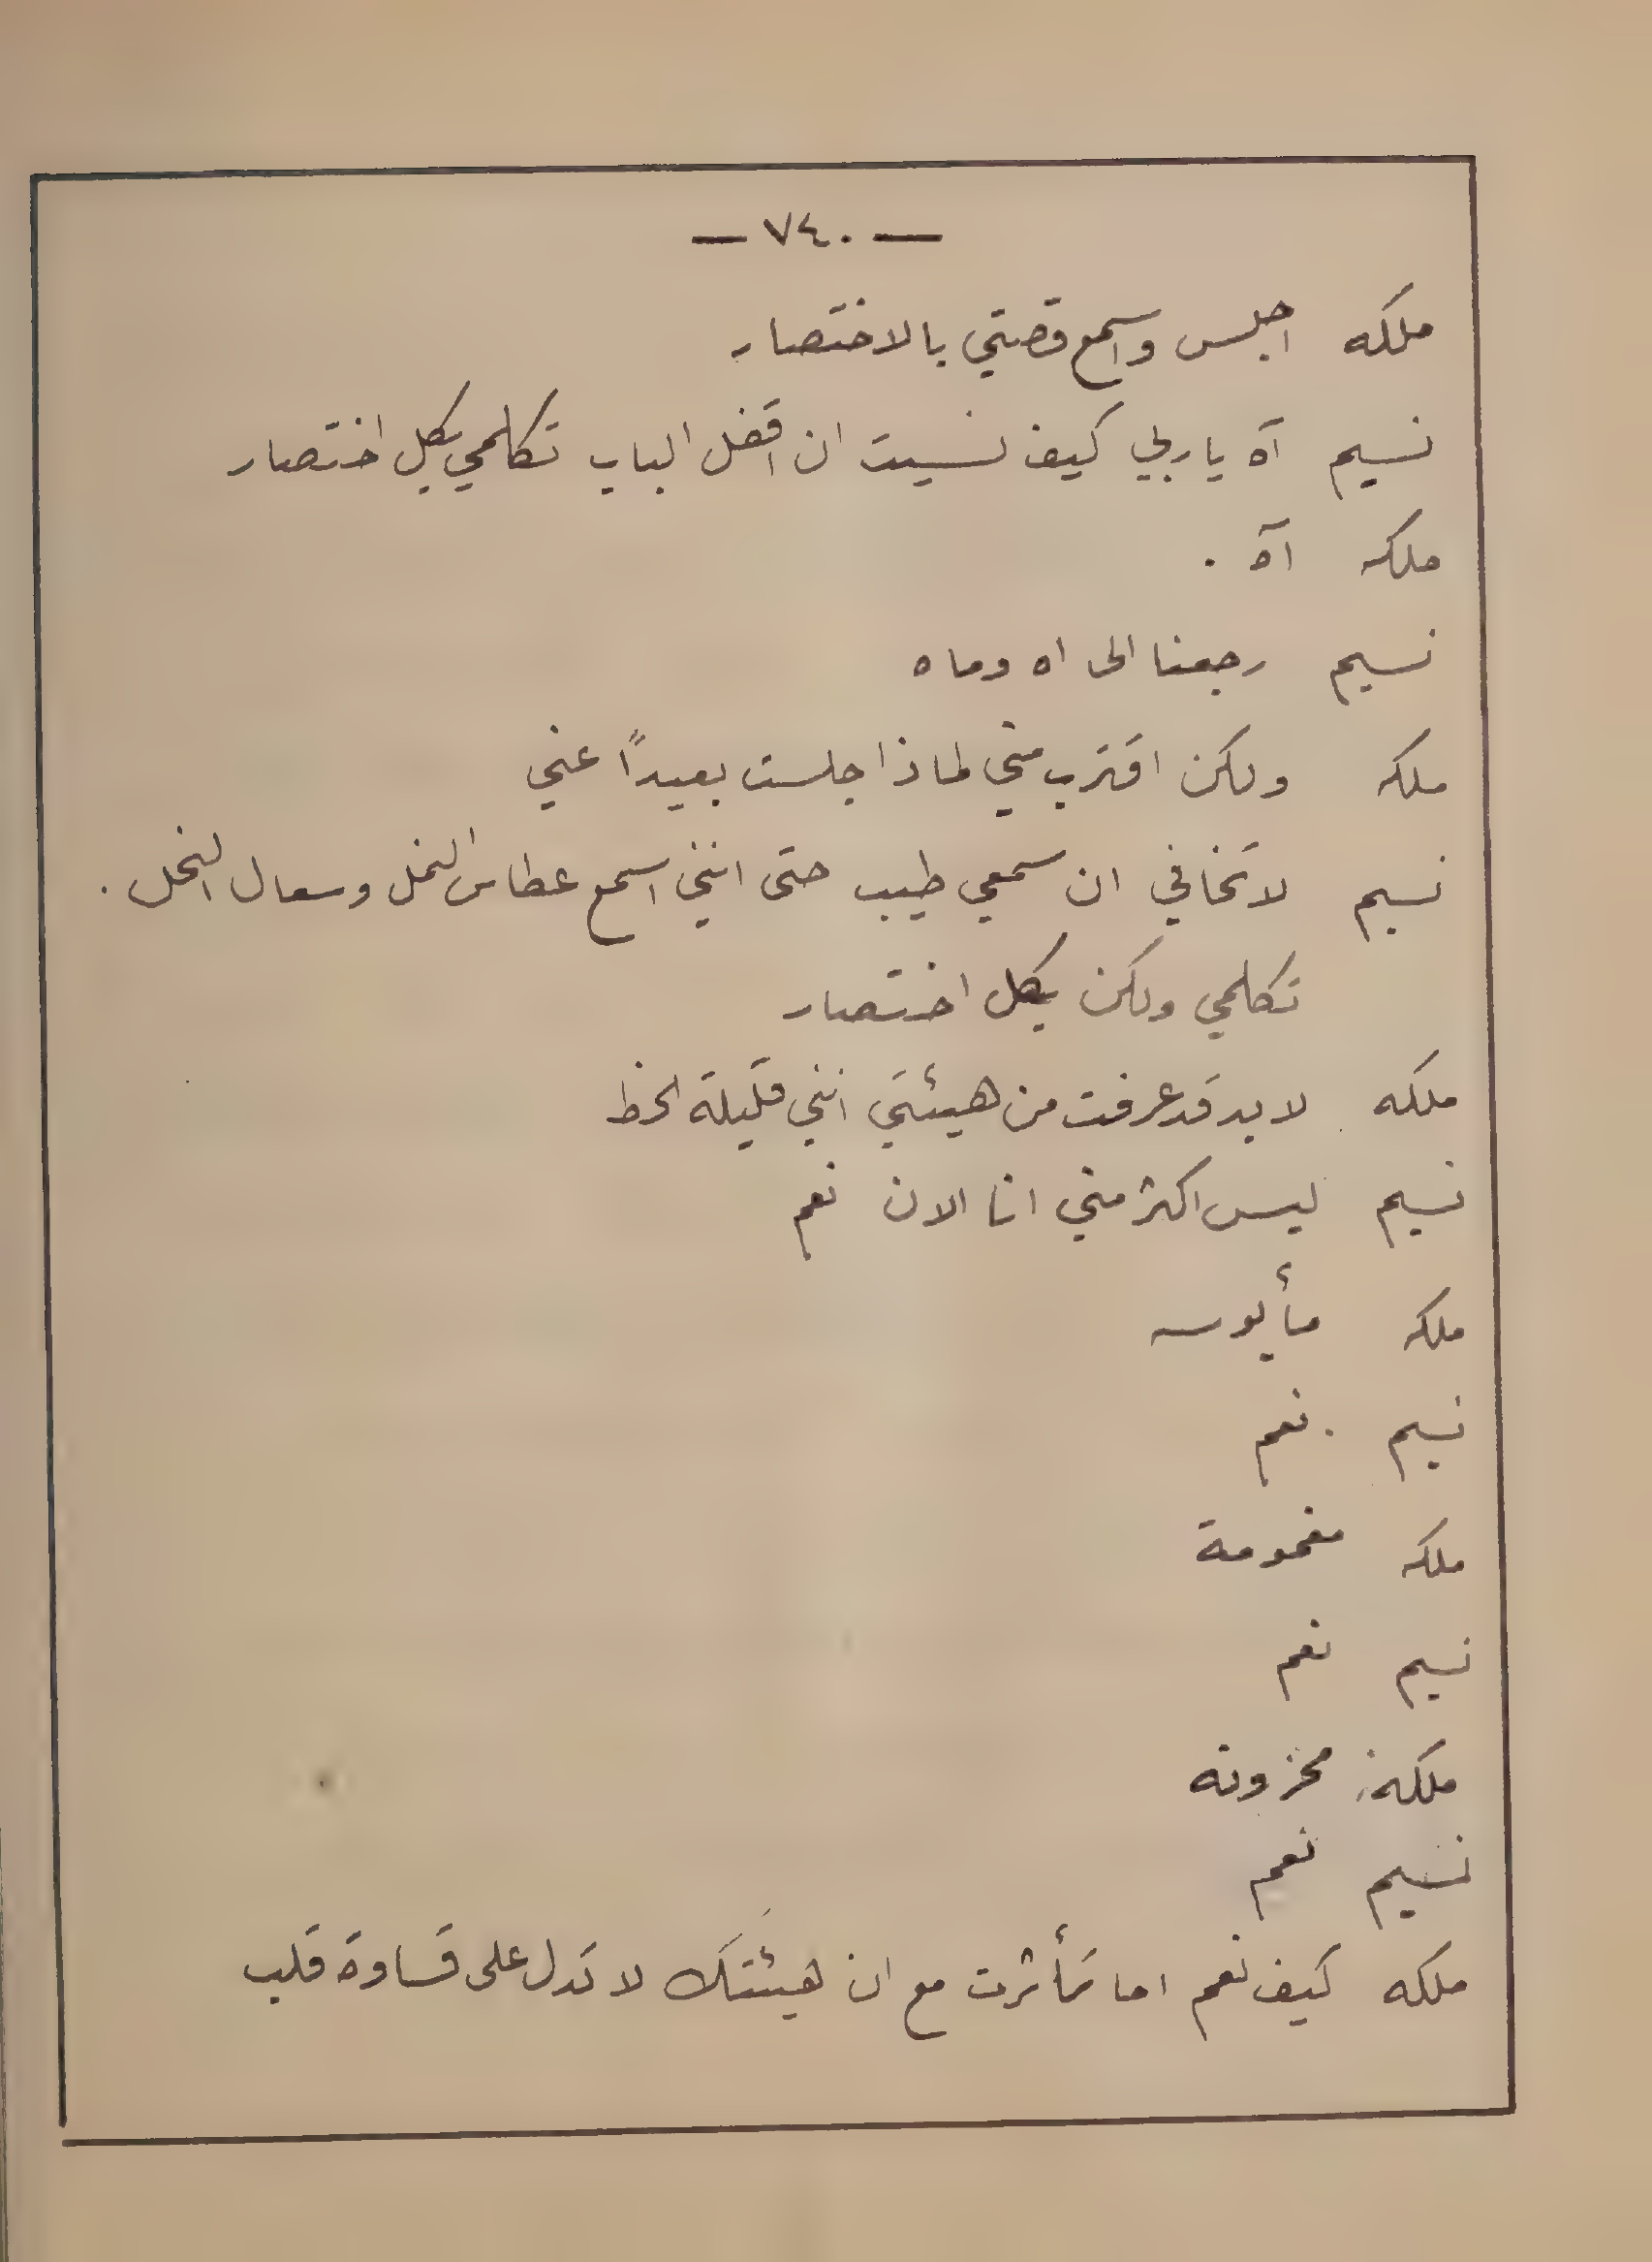 — ٧٤٠ —
ملكه اجلس واسمع قصتي بالاختصار
نسيم آه يا ربي كيف نسيت ان اقفل الباب تكلمي بكل اختصار
ملكه آه .
نسيم رجعنا الى اه وماه
ملكه ولكن اقترب مني لماذا جلست بعيداً عني
نسيم لا تخافي ان سمعي طيب حتى انني اسمع عطاس النمل وسعال النحل .
تكلمي ولكن بكل اختصار
ملكه لا بد قد عرفت من هيئتي انني قليلة الحظ
نسيم ليس اكثر مني انا الان نعم
ملكه مأيوسه
نسيم . نعم
ملكه مغمومة
نسيم نعم
ملكه محزونه
نسيم نعم
ملكه كيف نعم اما تأثرت مع ان هيئتك لا تدل على قساوة قلب